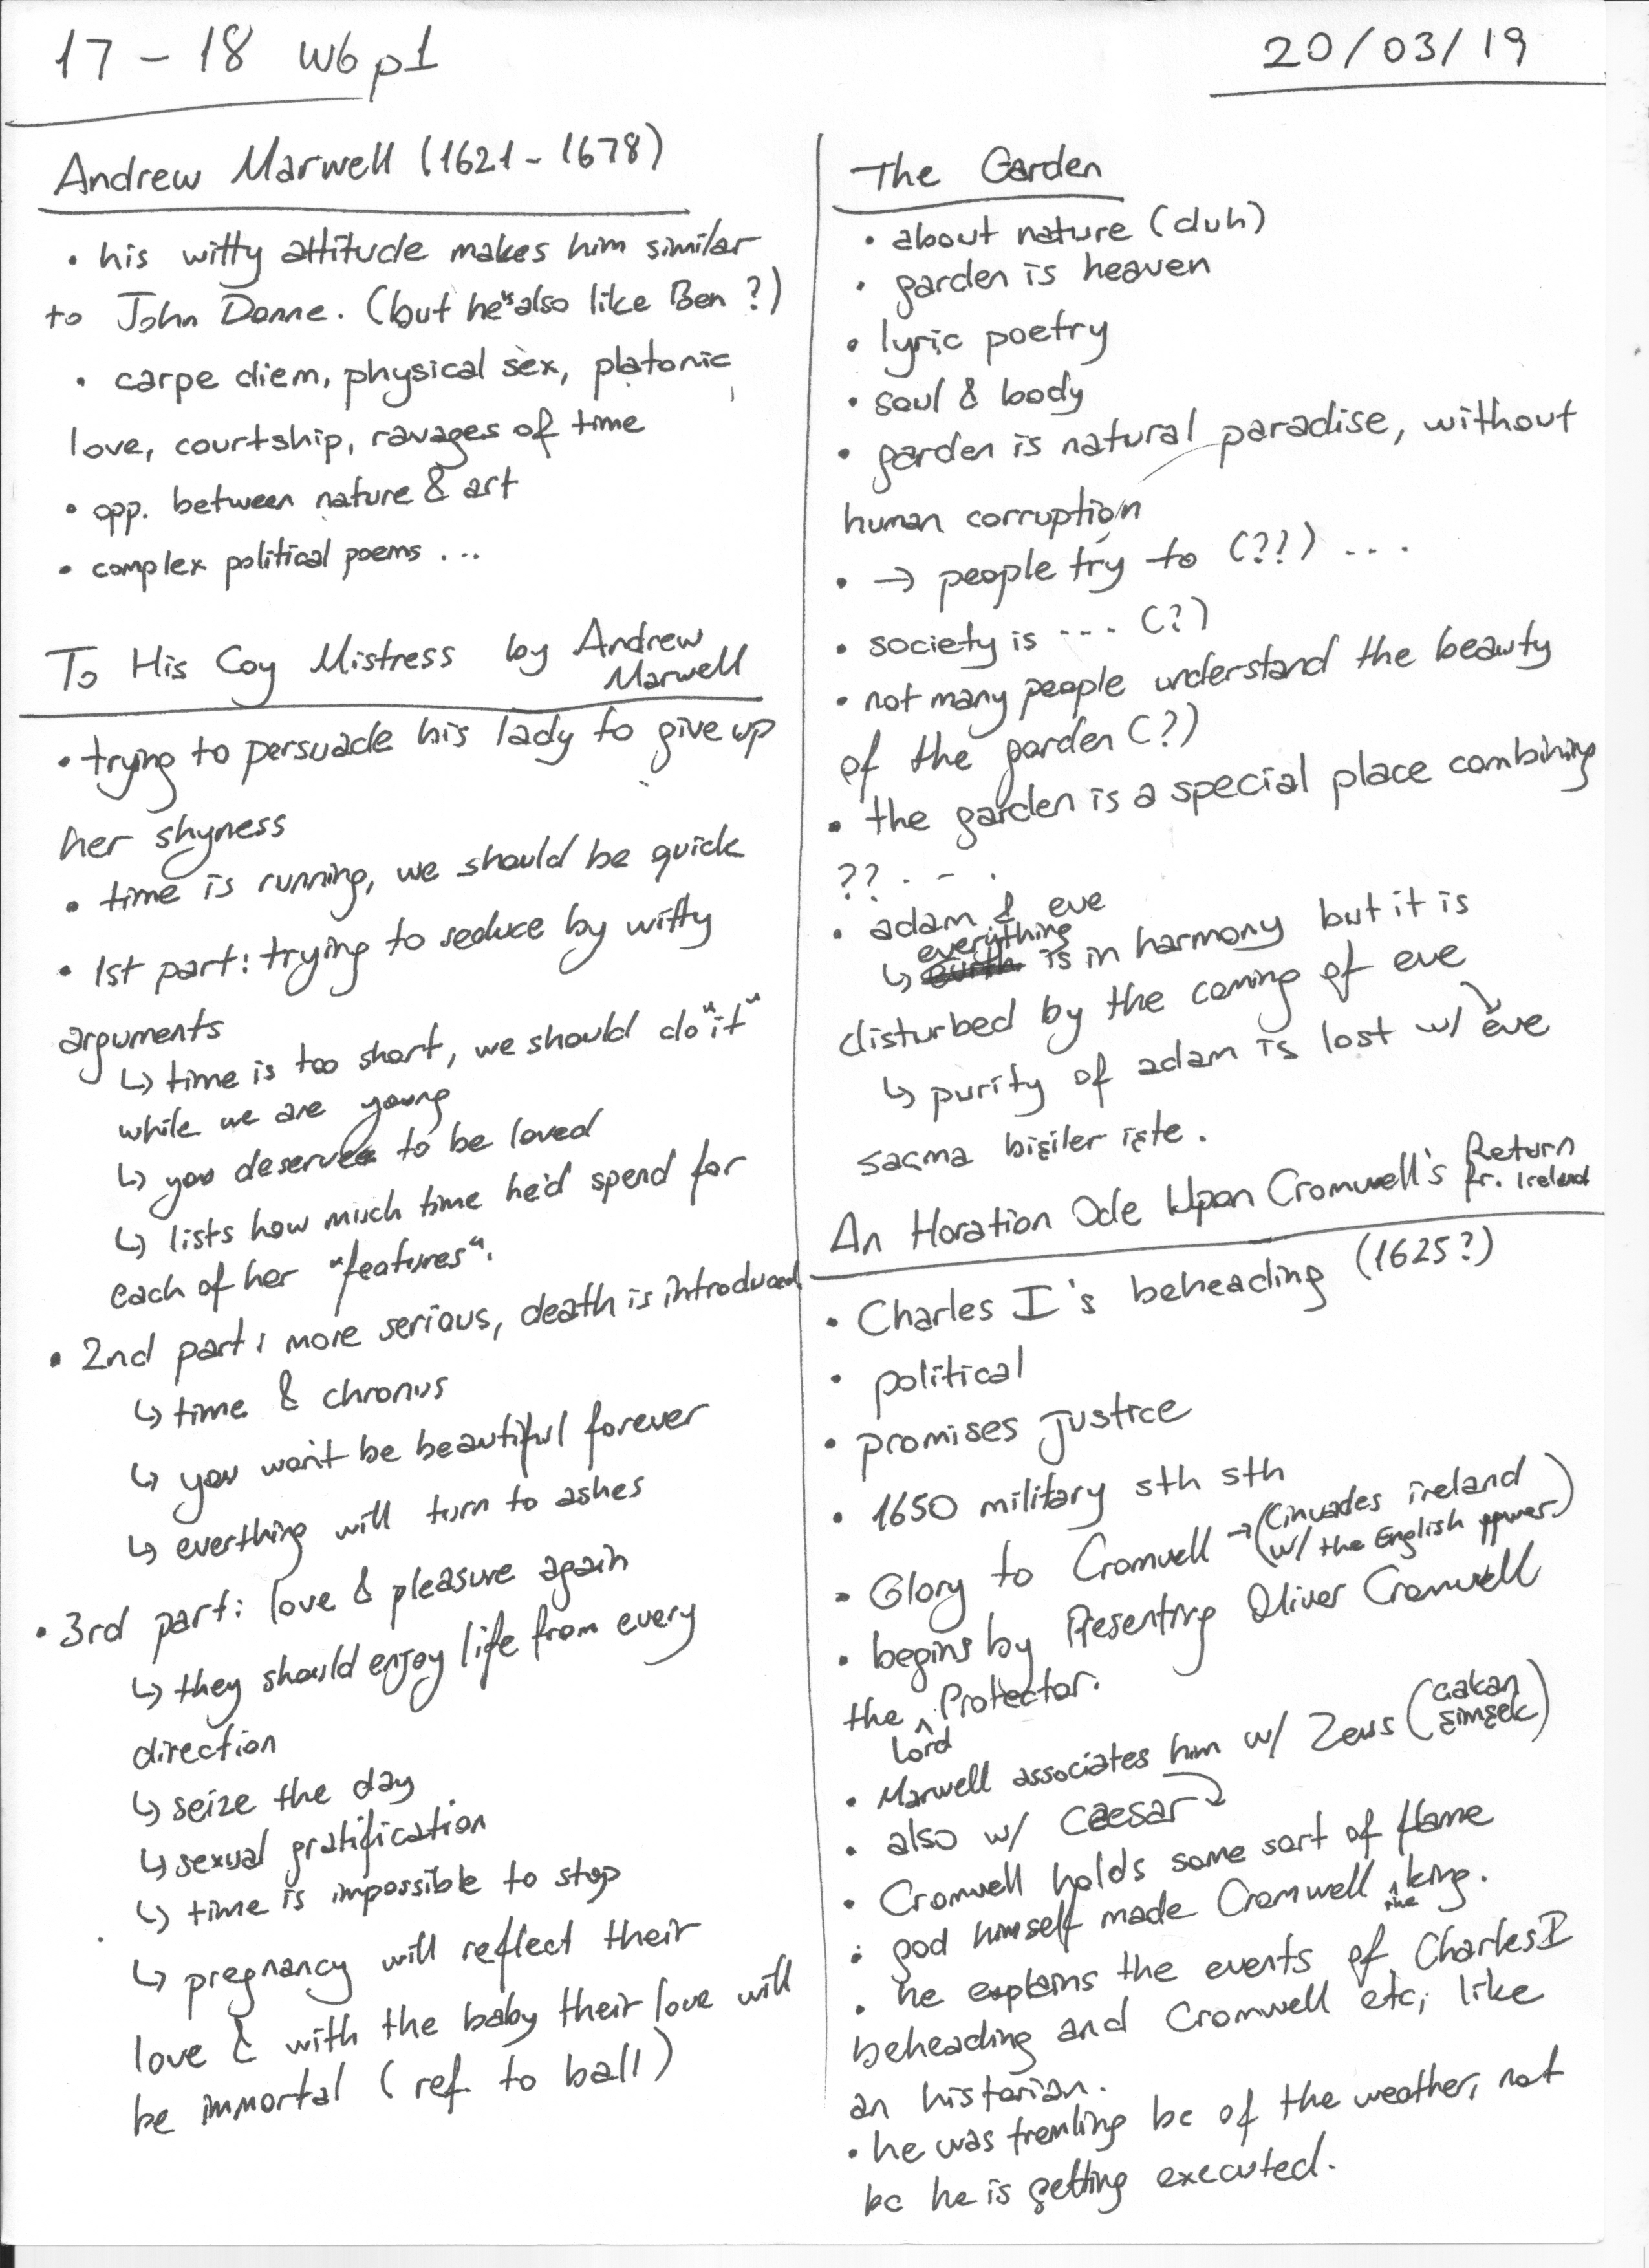 17 – 18 W6 p1
20/03/19
Andrew Marwell (1621 – 1678)
• his witty attitude makes him similar
to John Donne. (but he's also like Ben?)
• carpe diem, physical sex, platonic
love, courtship, ravages of time
• opp. between nature & art
• complex political poems ...
To His Coy Mistress by Andrew
Marwell
• trying to persuade his lady to give up
her shyness
• time is running, we should be quick
• 1st part: trying to seduce by witty
arguments
↳ time is too short, we should do "it"
while we are young
↳ you deserve to be loved
↳ lists how much time he'd spend for
each of her "features".
• 2nd part: more serious, death is introduced
↳ time & chronus
↳ you won't be beautiful forever
↳ everthing will turn to ashes
• 3rd part: love & pleasure again
↳ they should enjoy life from every
direction
↳ seize the day
↳ sexual gratification
↳ time is impossible to stop
↳ pregnancy will reflect their
love & with the baby their love will
be immortal (ref. to ball)
The Garden
• about nature (duh)
• garden is heaven
• lyric poetry
• soul & body
• garden is natural paradise, without
human corruption
• → people try to (??) ...
• society is ... (?)
• not many people understand the beauty
of the garden (?)
• the garden is a special place combining
?? . - .
• adam & eve
↳ everything is in harmony but it is
disturbed by the coming of eve
↳ purity of adam is lost w/ eve
saçma bişiler işte.
An Horation Ode Upon Cromwell's Return
fr. Ireland
• Charles I's beheading (1625?)
• political
• promises justice
• 1650 military sth sth
• Glory to Cromwell → (invades ireland
w/ the English power.)
• begins by Presenting Oliver Cromwell
the Lord Protector.
• Marwell associates him w/ Zeus (çakan
şimşek)
• also w/ Caesar
• Cromwell holds some sort of flame
• god himself made Cromwell the king.
• he explains the events of Charles I
beheading and Cromwell etc, like
an historian.
• he was tremling bc of the weather, not
bc he is getting executed.